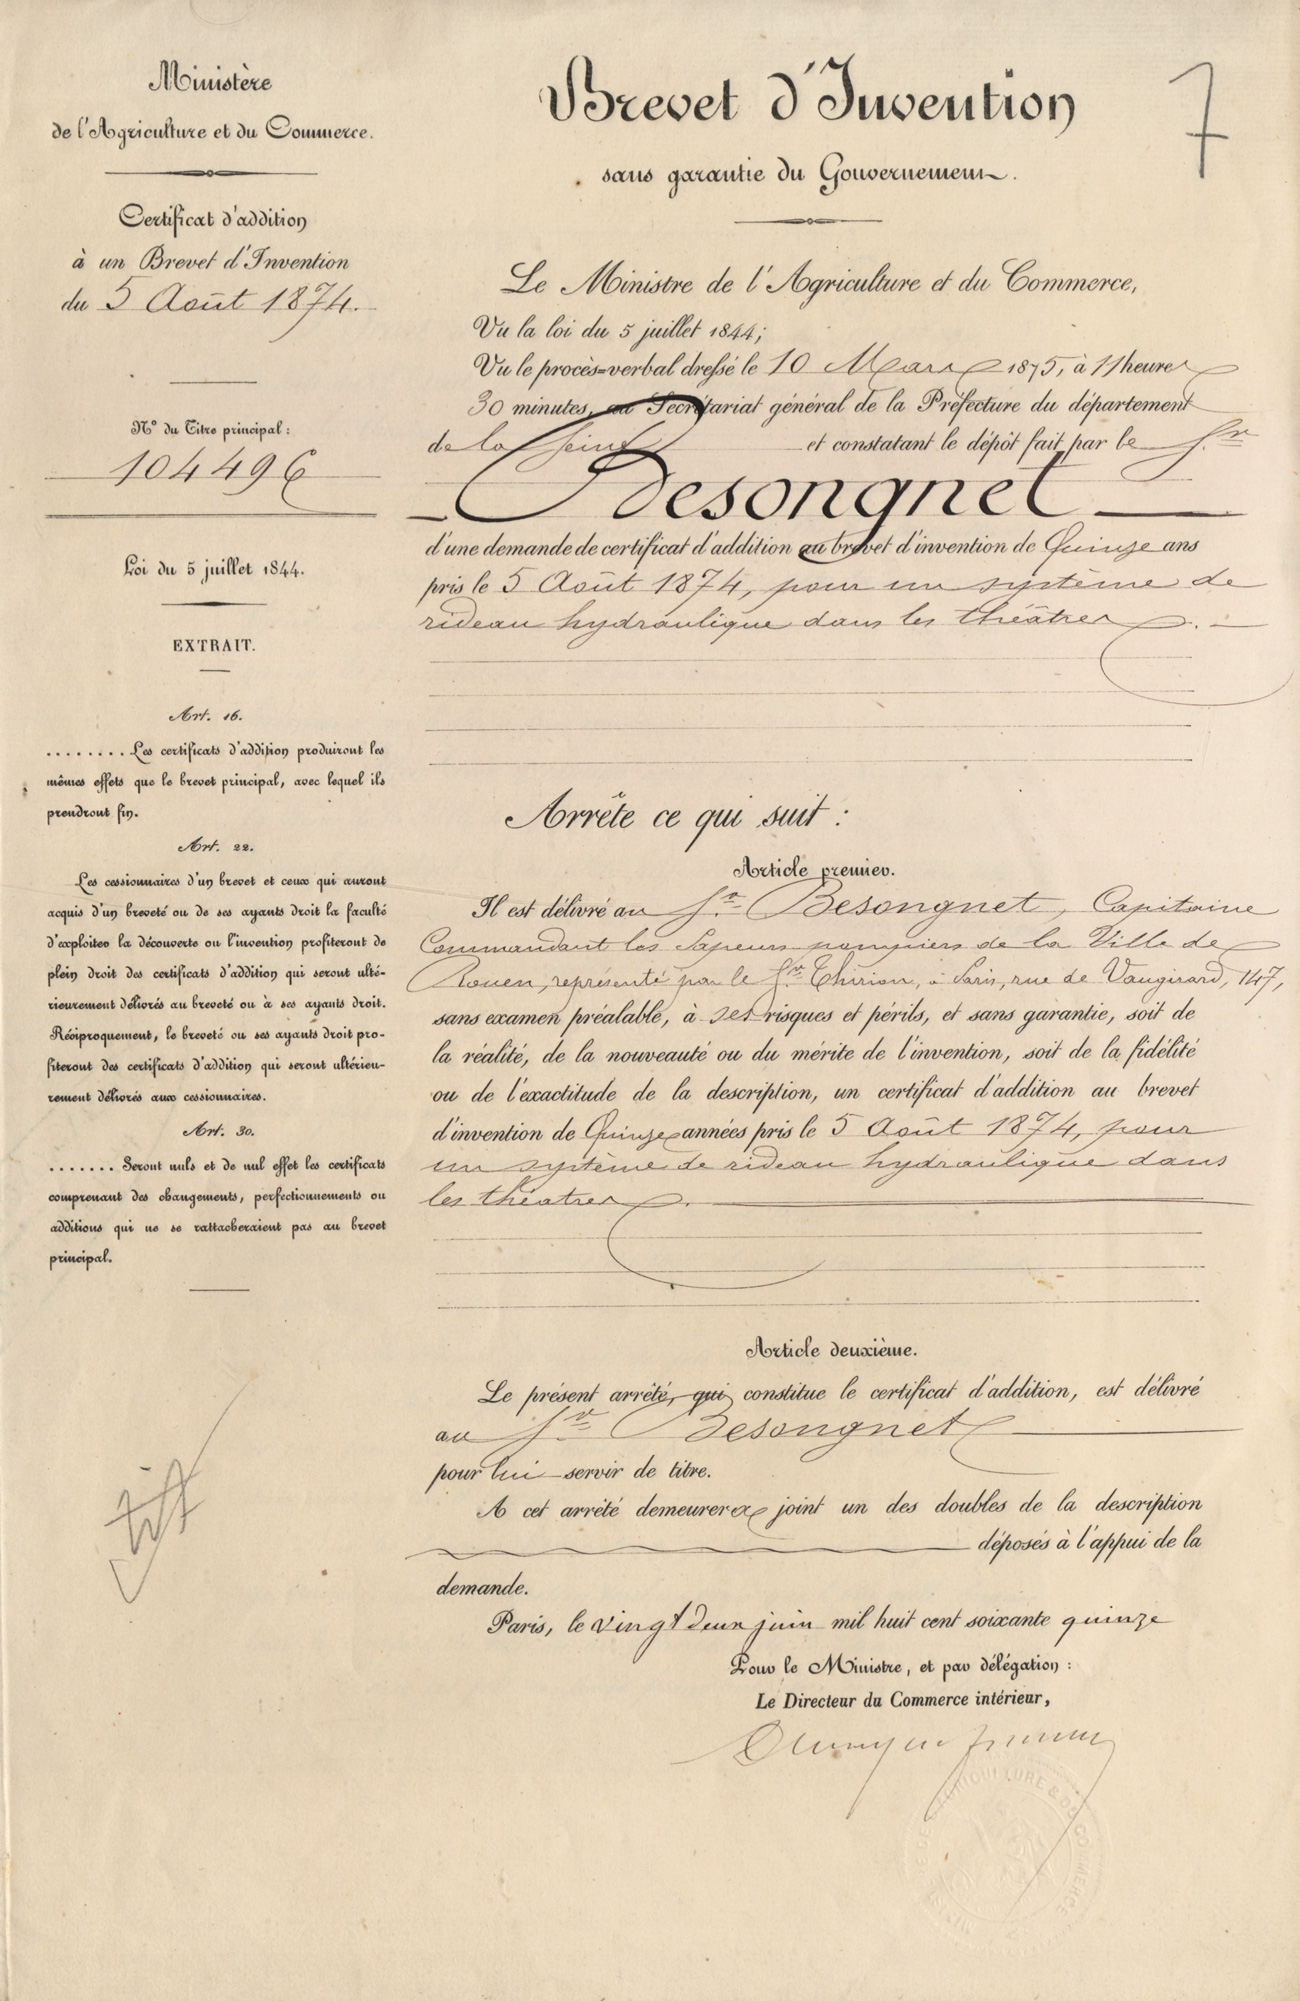 Ministère
de l'Agriculture et du Commerce.
Certificat d'addition
à un Brevet d'Invention
du 5 Août 1874.
N° du Titre principal :
104496
Loi du 5 juillet 1844.
EXTRAIT.
Art. 16.
........ Les certificats d'addition produiront les
mêmes effets que le brevet principal, avec lequel ils
prendront fin.
Art. 22.
Les cessionnaires d'un brevet et ceux qui auront
acquis d'un breveté ou de ses ayants droit la faculté
d'exploiter la découverte ou l'invention profiteront de
plein droit des certificats d'addition qui seront ulté-
rieurement délivrés au breveté ou à ses ayants droit.
Réciproquement, le breveté ou ses ayants droit pro-
fiteront des certificats d'addition qui seront ultérieu-
rement délivrés aux cessionnaires.
Art. 30.
....... Seront nuls et de nul effet les certificats
comprenant des changements, perfectionnements ou
additions qui ne se rattacheraient pas au brevet
principal.
7
Brevet d'Invention
sans garantie du Gouvernement.
Le Ministre de l'Agriculture et du Commerce,
Vu la loi du 5 juillet 1844;
Vu le procès=verbal dressé le 10 Mars 1875, à 11 heures
30 minutes, au Secrétariat général de la Préfecture du département
de la Seine et constatant le dépôt fait par le Sr
Besongnet
d'une demande de certificat d'addition au brevet d'invention de Quinze ans
pris le 5 Août 1874, pour un système de
rideau hydraulique dans les théâtres.
Arrête ce qui suit :
Article premier.
Il est délivré au Sr. Besongnet, Capitaine
Commandant les Sapeurs pompiers de la Ville de
Rouen, représenté par le Sr. Thirion, à Paris, rue de Vaugirard, 147,
sans examen préalable, à ses risques et périls, et sans garantie, soit de
la réalité, de la nouveauté ou du mérite de l'invention, soit de la fidélité
ou de l'exactitude de la description, un certificat d'addition au brevet
d'invention de Quinze années pris le 5 Août 1874, pour
un système de rideau hydraulique dans
les théâtres.
Article deuxième.
Le présent arrêté, qui constitue le certificat d'addition, est délivré
au Sr Besongnet
pour lui servir de titre.
A cet arrêté demeurera joint un des doubles de la description
déposés à l'appui de la
demande.
Paris, le vingt deux juin mil huit cent soixante quinze
Pour le Ministre, et par délégation :
Le Directeur du Commerce intérieur,